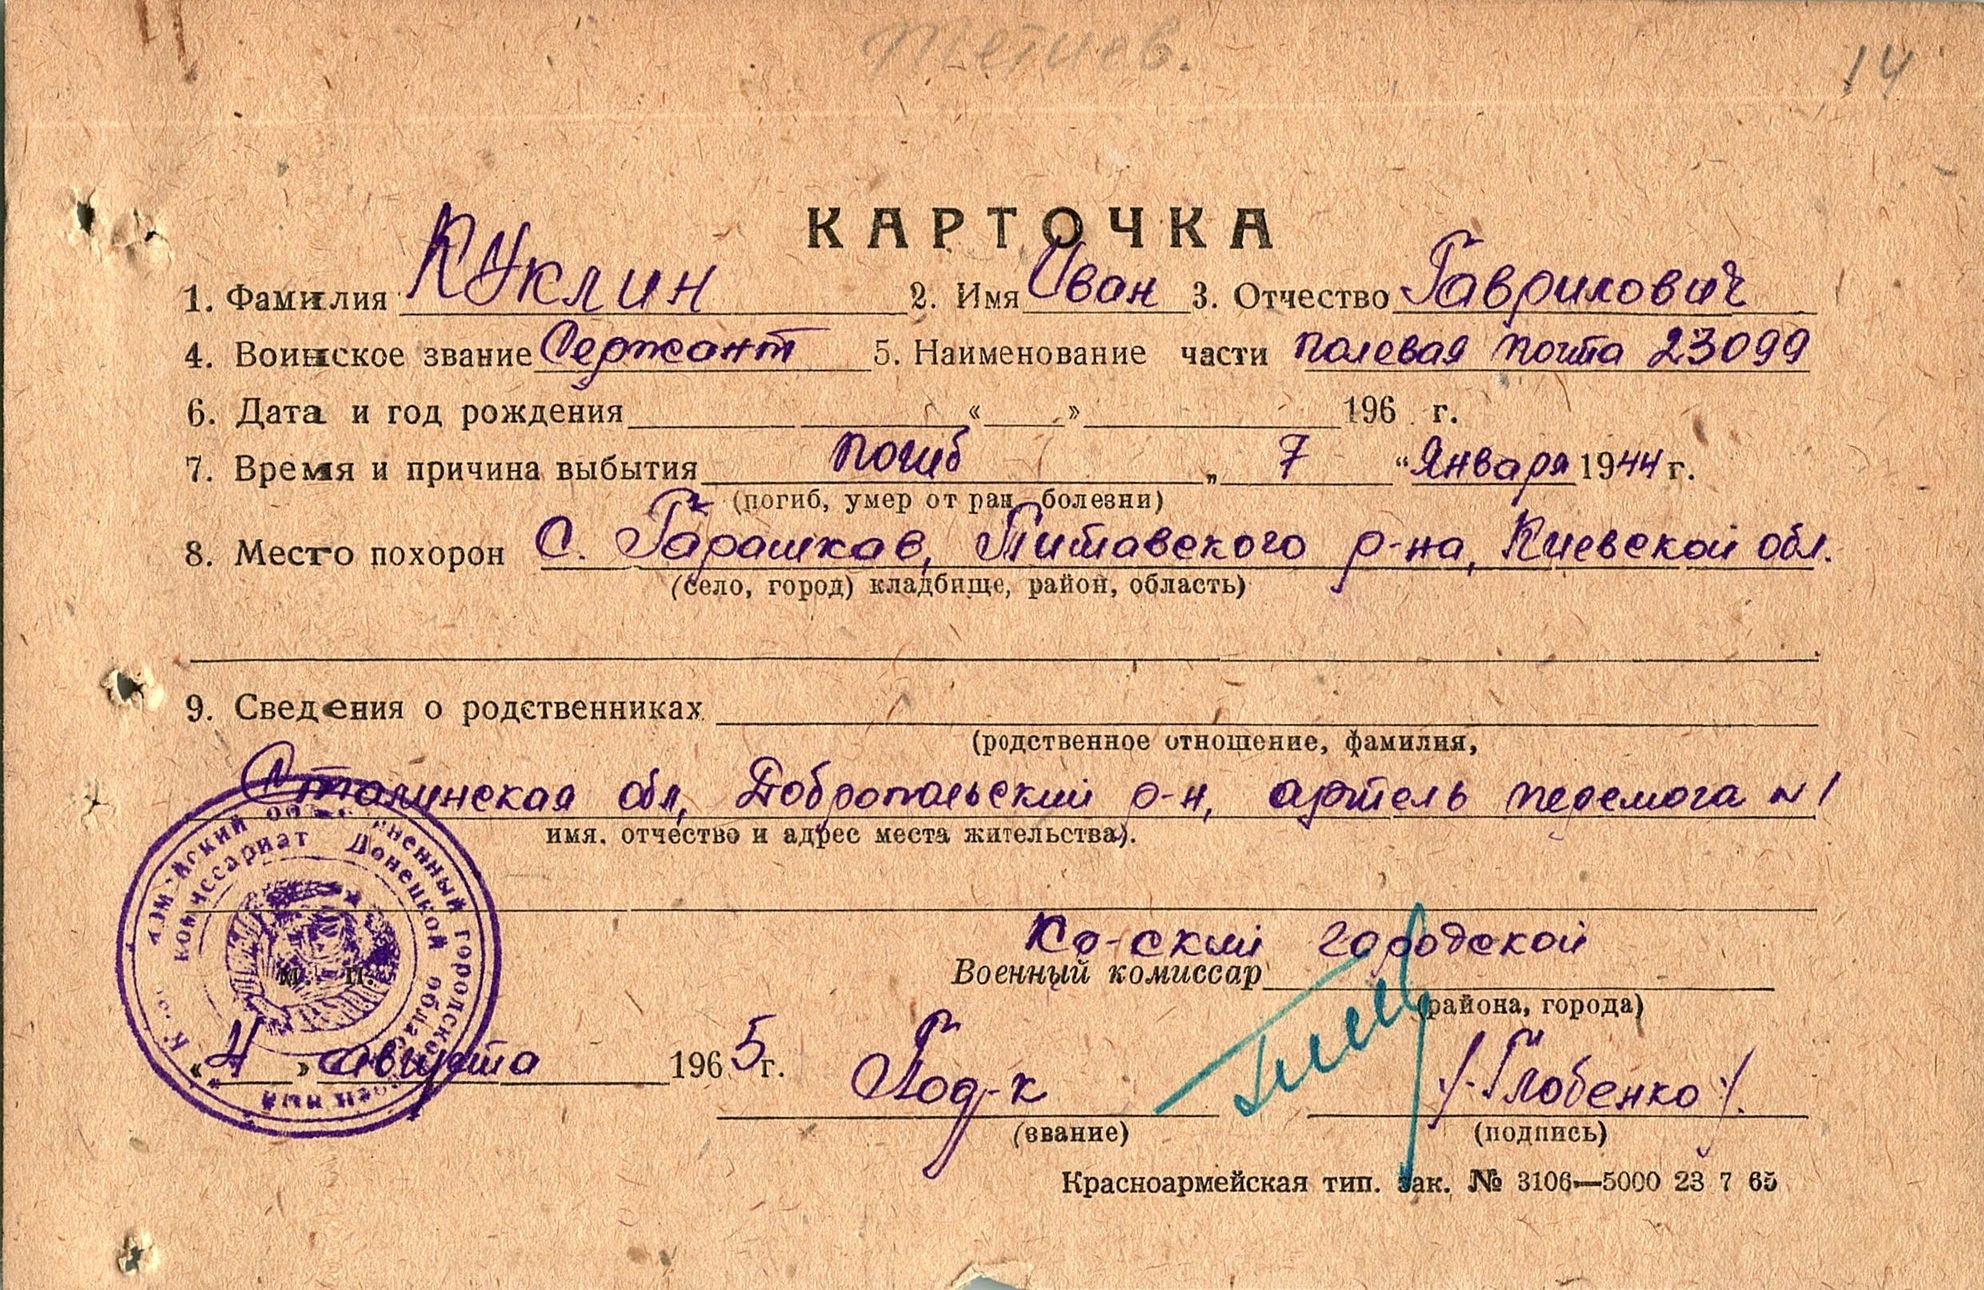 Тетиев.
14
КАРТОЧКА
1. Фамилия Куклин 2. Имя Иван 3. Отчество Гаврилович
4. Воинское звание Сержант 5. Наименование части полевая почта 23099
6. Дата и год рождения г. « » 196 г.
7. Время и причина выбытия погиб „ 7 “ Января 1944 г.
(погиб, умер от ран, болезни)
8. Место похорон с. Гарашков, Титавского р-на, Киевской обл.
(село, город) кладбище, район, область)
9. Сведения о родственниках
(родственное отношение, фамилия,
Сталинская обл, Добропольский р-н, артель перемога N1
имя, отчество и адрес места жительства).
объединенный городской
комиссариат Донецкой области
военный
М. П.
Кр-ский городской
Военный комиссар
(района, города)
« 4 » августа 1965 г. Под-к /-Глобенко-/.
(звание) (подпись)
Красноармейская тип. зак. № 3106—5000 23 7 65